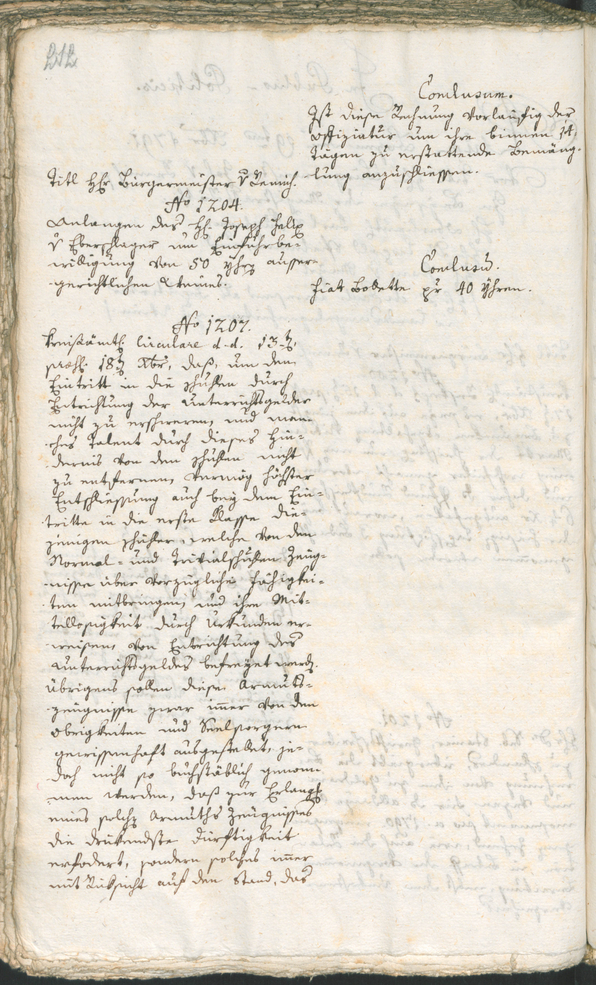 212
Conclusum.
Ist diese Rechnung vorläufig der
Offiziatur um ihre binnen 14
Tagen zu erstattende Bemäng-
lung anzuschliessen.
Titl Hr. Bürgermeister v
No 1204.
Anlangen des H. Joseph
v Eberschlager um Einfuhrbe-
willigung von 50 Yhrn ausser-
gerichtlichen Weines.
Conclusū.
fiat Bolette pr 40 Yhren.
No 1207.
Kreisämtl. Circulare d.d. 13t
präs. 18t Xbr, daß, um den
Eintritt in die Schulen durch
Entrichtung der Unterrichtsgelder
nicht zu erschweren, und man-
ches Talent durch dieses Hin-
dernis von den Schulen nicht
zu entfernen, vermög höchster
Entschliessung auch bey dem Ein-
tritte in die erste Klasse die-
jenigen Schüler, welche von den
Normal- und Trivialschulen Zeug-
nisse über vorzügliche Fähigkei-
ten mitbringen, und ihre Mit-
tellosigkeit durch Urkunden er-
weisen, von Entrichtung des
Unterrichtsgeldes befreyet werdn.
Übrigens sollen diese Armuts-
zeugnisse zwar immer von den
Obrigkeiten und Seelsorgern
gewissenhaft ausgestellet, je-
doch nicht so buchstäblich genom-
men werden, daß zur Erlangung
eines solchen Armuths Zeugnisses
die drükendste Dürftigkeit
erfodert, sondern solches immer
mit Rüksicht auf den Stand, das